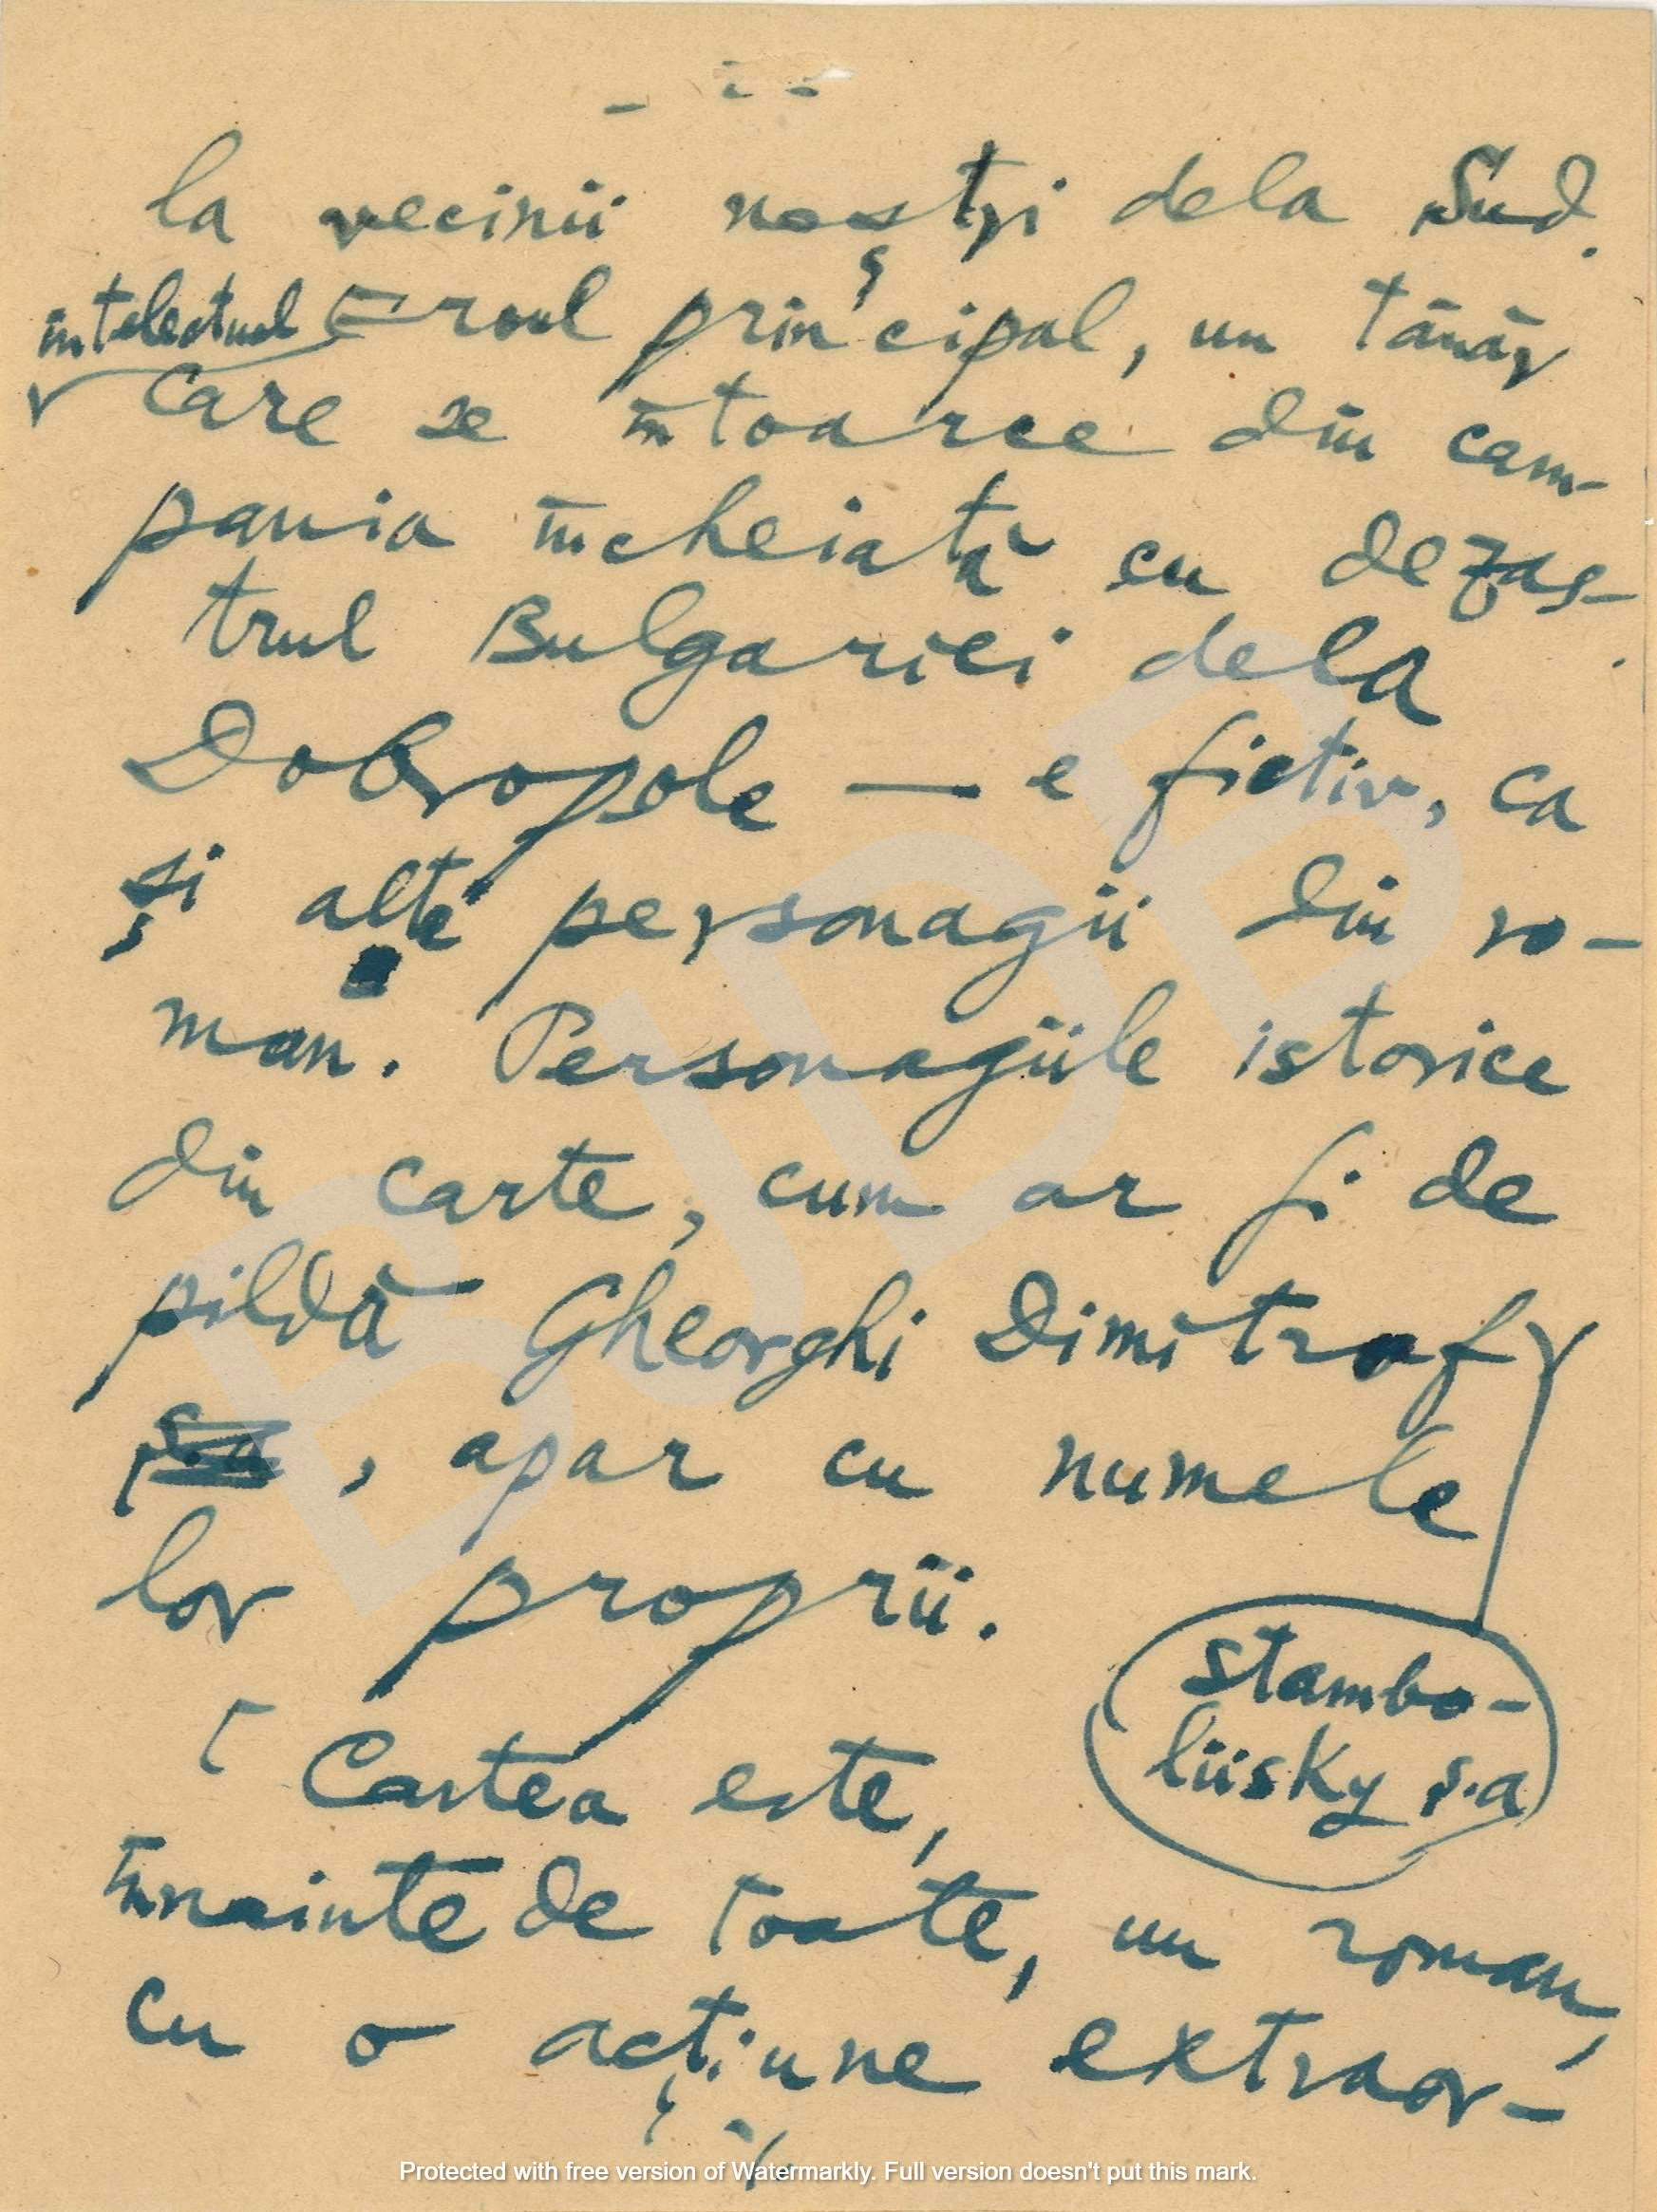 - 2 -
la vecinii noștri dela Sud.
intelectual Eroul principal, un tânăr
care se întoarce din cam-
pania încheiată cu dezas-
trul Bulgariei dela
Dobropole — e fictiv, ca
și alte personagii din ro-
man. Personagiile istorice
din carte, cum ar fi de
pildă Gheorghi Dimitrof
ș.a, apar cu numele
lor proprii.
Stambo-
liisky ș.a
Cartea este,
înainte de toate, un roman,
cu o acțiune extraor-
./.
BJDB
Protected with free version of Watermarkly. Full version doesn't put this mark.